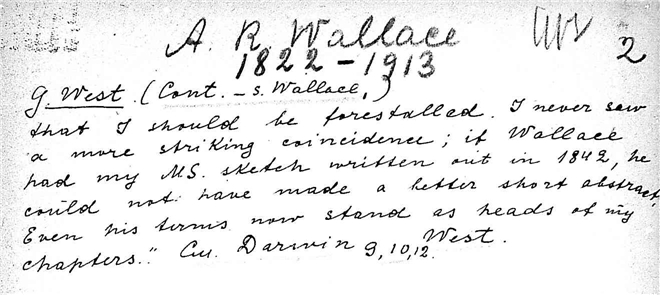 A. R. Wallace
2
1822-1913
G. West. (Cont. - s. Wallace,)
that I should be forestalled. I never saw
a more striking coincidence; if Wallace
had my MS. sketch written out in 1842, he
could not have made a better short abstract.
Even his terms now stand as heads of my
chapters." Darwin 9, 10, 12. West.